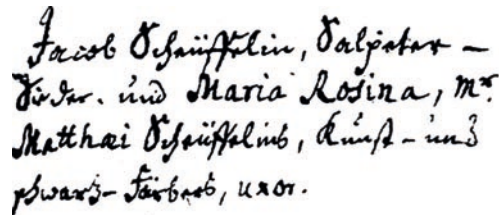 Jacob Scheüffelin, Salpeter –
Sieder. und Maria Rosina, Mr.
Matthæi Scheüffelins, Kunst – und
schwarz – Färbers, uxor.